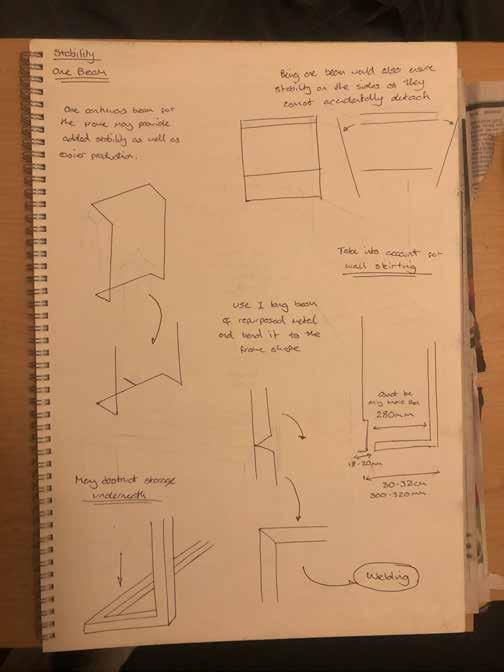 Stability
One Beam
One continuous beam for
the frame may provide
added stability as well as
easier production.
Being one beam would also ensure
stability on the sides as they
cannot accidentally detach
Take into account for
wall skirting
Use 1 long beam
of repurposed metal
and bend it to the
frame shape
be
any more than
280mm
18-20mm
30-32cm
300-320mm
May obstruct storage
underneath
Welding